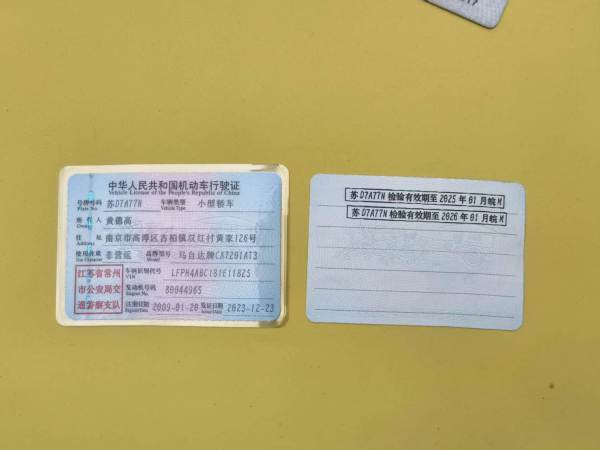 中华人民共和国机动车行驶证
Vehicle License of the People's Republic of China
号牌号码 苏D7A77N 车辆类型 小型轿车
Plate No. Vehicle Type
所有人 黄德高
Owner
住址 南京市高淳区古柏镇双红村黄家126号
Address
使用性质 非营运 品牌型号 马自达牌CA7201AT3
Use Character Model
江苏省常州 车辆识别代号 LFPH4ABC181E11825
VIN
市公安局交 发动机号码 80044965
Engine No.
通警察支队 注册日期 2009-01-20 发证日期 2023-12-23
Register Date Issue Date
苏D7A77N 检验有效期至2025年01月皖M
苏D7A77N 检验有效期至2026年01月皖M